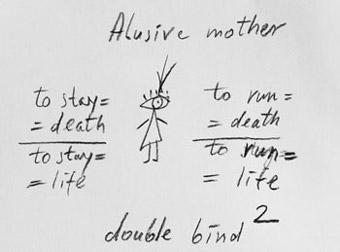 Alusive mother
to stay=
= death
to stay=
= life
to run =
= death
to run=
= life
double bind 2